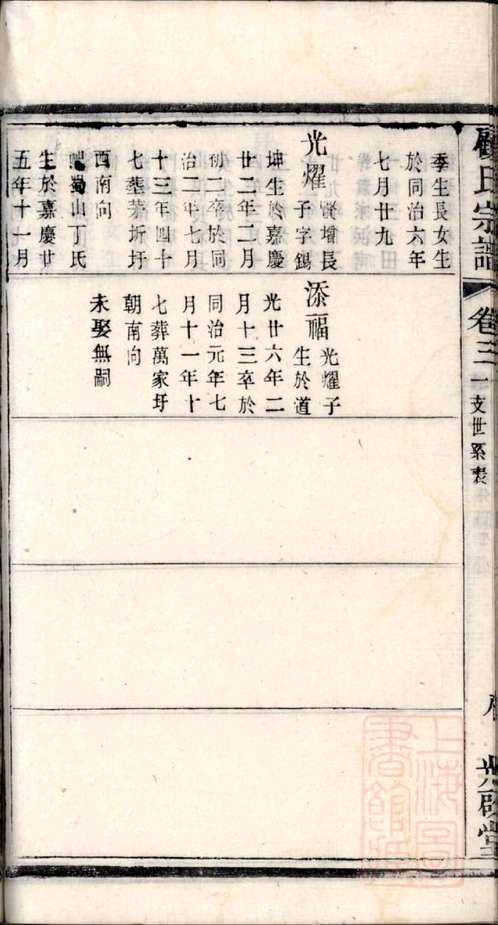 顧氏宗譜
卷三
一支世系表
光啟堂
季生長女生
於同治六年
七月廿九
光耀
賢增長
子字錫
坤生於嘉慶
廿二年二月
初二卒於同
治二年七月
十三年四十
七葬茅圻圩
西南向
蜀山丁氏
生於嘉慶廿
五年十一月
添福
光耀子
生於道
光廿六年二
月十三卒於
同治元年七
月十一年十
七葬萬家圩
朝南向
未娶無嗣
上海圖書館藏